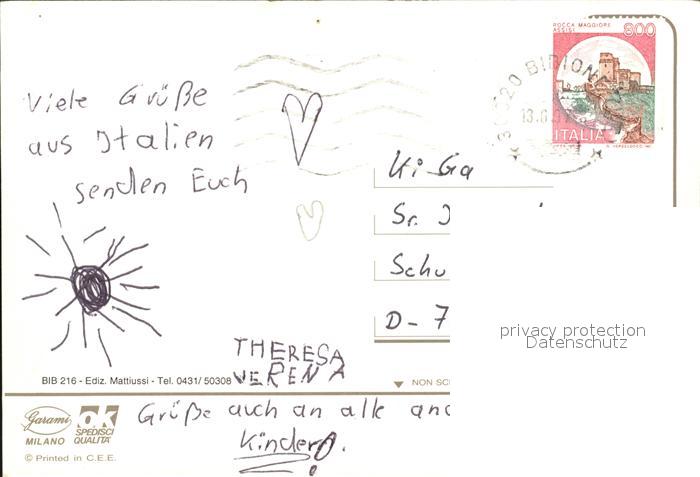 ROCCA MAGGIORE
ASSISI
800
ITALIA
BIBIONE
Viele Grüße
aus Italien
senden Euch
Ki-Ga
Sr. J
Schu
D-7
privacy protection
Datenschutz
THERESA
VERENA
BIB 216 - Ediz. Mattiussi - Tel. 0431/ 50308
NON SC
Grüße auch an alle and
Kinder!
Garami
MILANO
OK
SPEDISCI
QUALITA'
© Printed in C.E.E.